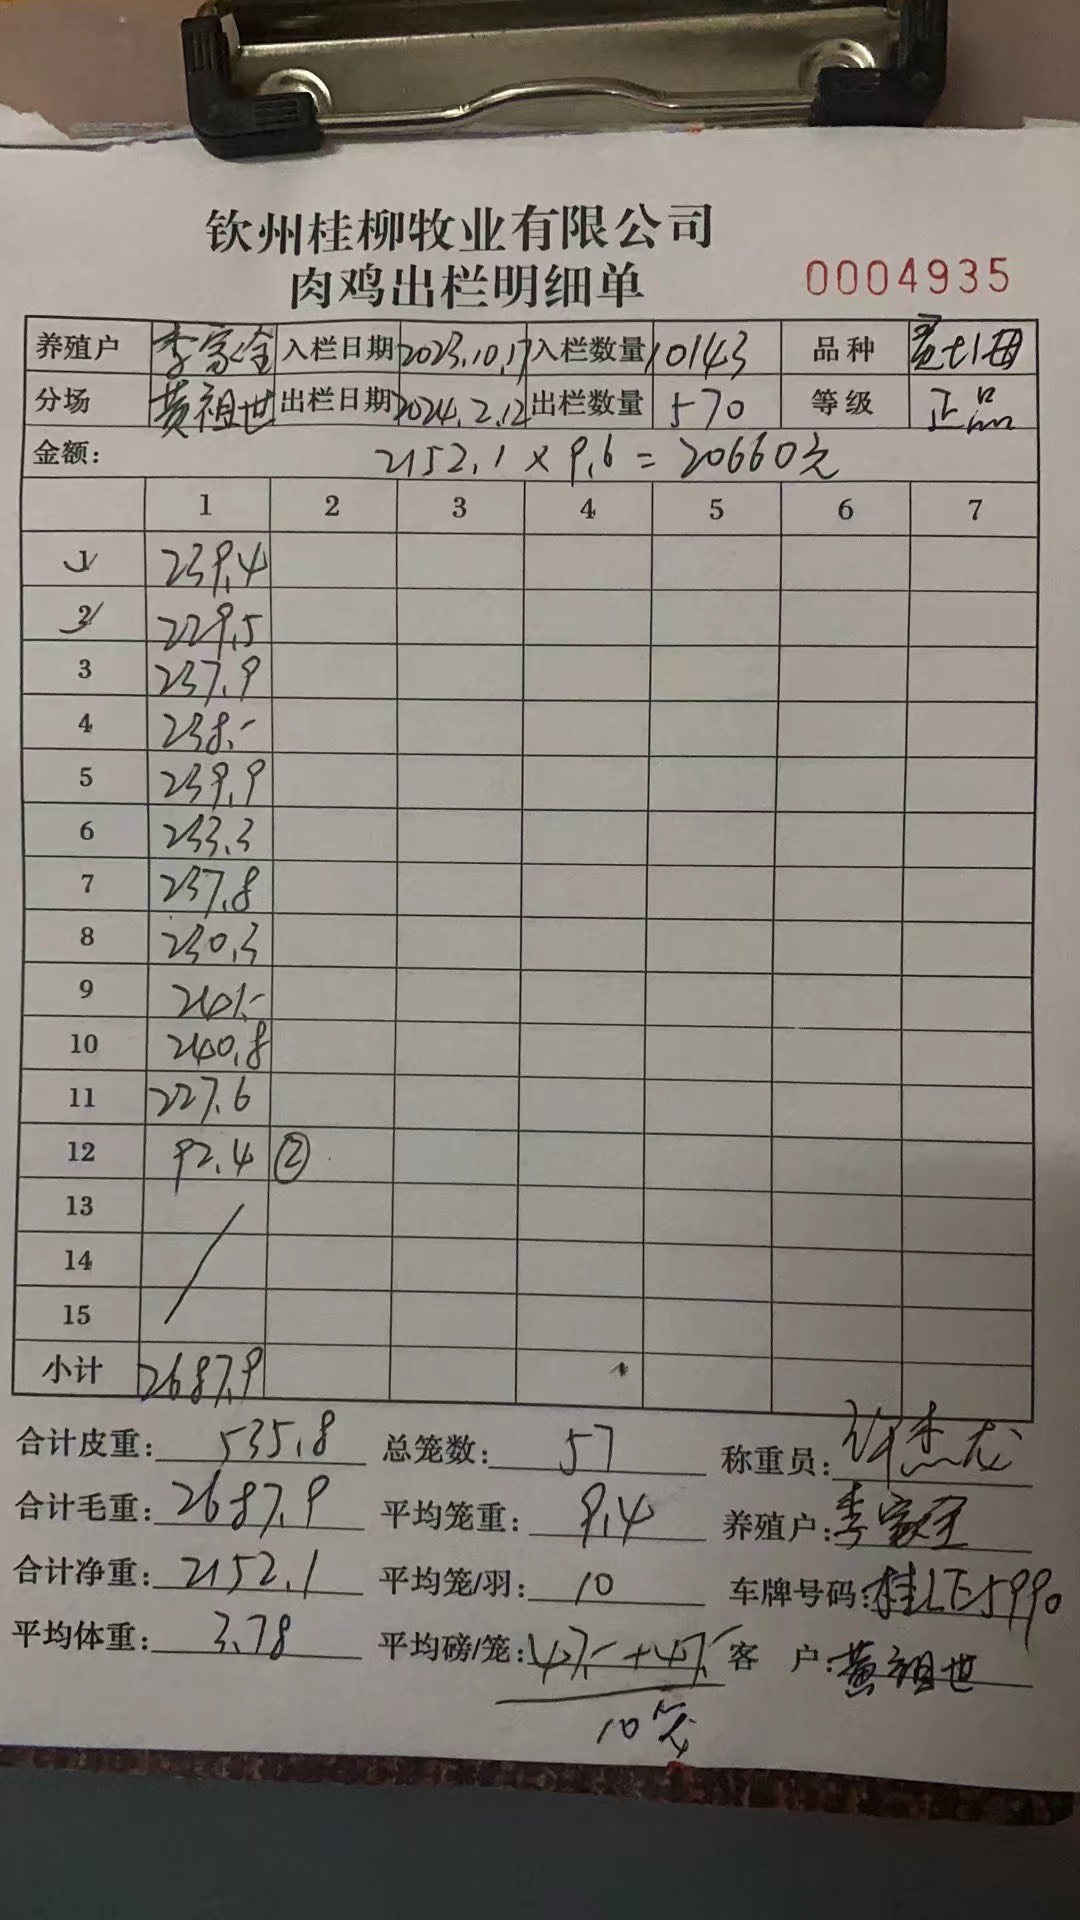 钦州桂柳牧业有限公司
肉鸡出栏明细单 0004935
养殖户 李家全 入栏日期 2023.10.17 入栏数量 10143 品种
分场 黄祖世 出栏日期 2024.2.12 出栏数量 570 等级 正品
金额: 2152.1 × 9.6 = 20660元
1 2 3 4 5 6 7
1 239.4
2 229.5
3 237.9
4 238.-
5 239.9
6 233.3
7 237.8
8 230.3
9 241.-
10 240.8
11 227.6
12 92.4 ②
13
14
15
小计 2687.9
合计皮重: 535.8 总笼数: 57 称重员: 许杰龙
合计毛重: 2687.9 平均笼重: 9.4 养殖户: 李家全
合计净重: 2152.1 平均笼/羽: 10 车牌号码: 桂LE5990
平均体重: 3.78 平均磅/笼: 47.- + 47.- 客 户: 黄祖世
10笼